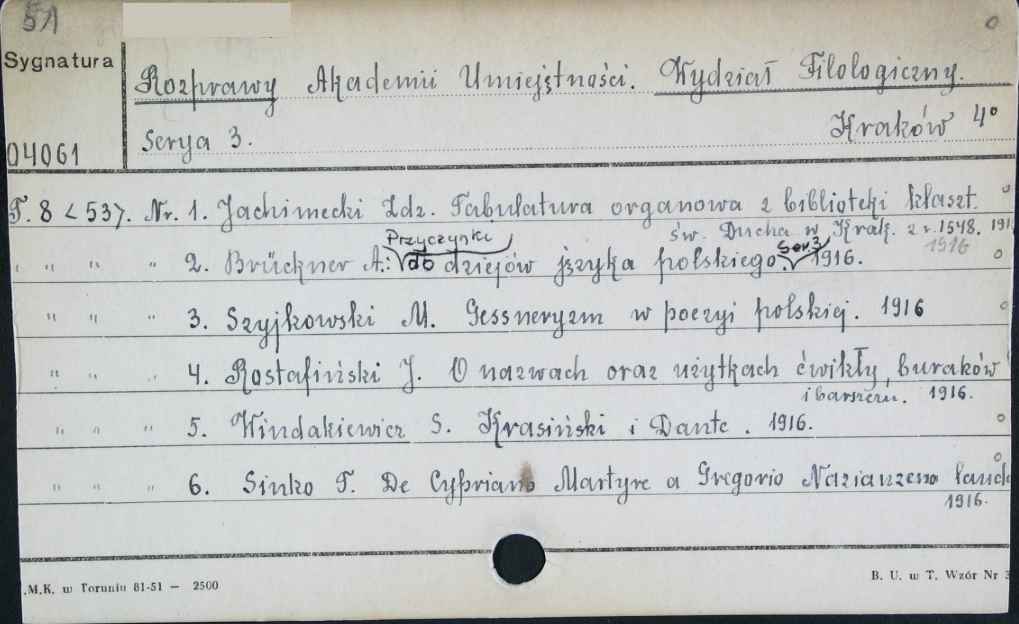 51
Sygnatura
04061
Rozprawy Akademii Umiejętności. Wydział Filologiczny.
Serya 3. Kraków 4°
T. 8 <53>. Nr. 1. Jachimecki Zdz. Tabulatura organowa z biblioteki klaszt.
św. Ducha w Krak. z r. 1548. 191
1916
Przyczynki
Ser. 3
" " " " 2. Brückner A.: do dziejów języka polskiego. 1916.
" " " 3. Szyjkowski M. Gessneryzm w poezyi polskiej. 1916
" " " 4. Rostafiński J. O nazwach oraz użytkach ćwikły, buraków
i barszczu. 1916.
" " " 5. Windakiewicz S. Krasiński i Dante. 1916.
" " " 6. Sinko T. De Cypriano Martyre a Gregorio Nazianzeno laud
1916.
.M.K. w Toruniu 81-51 — 2500
B. U. w T. Wzór Nr 3